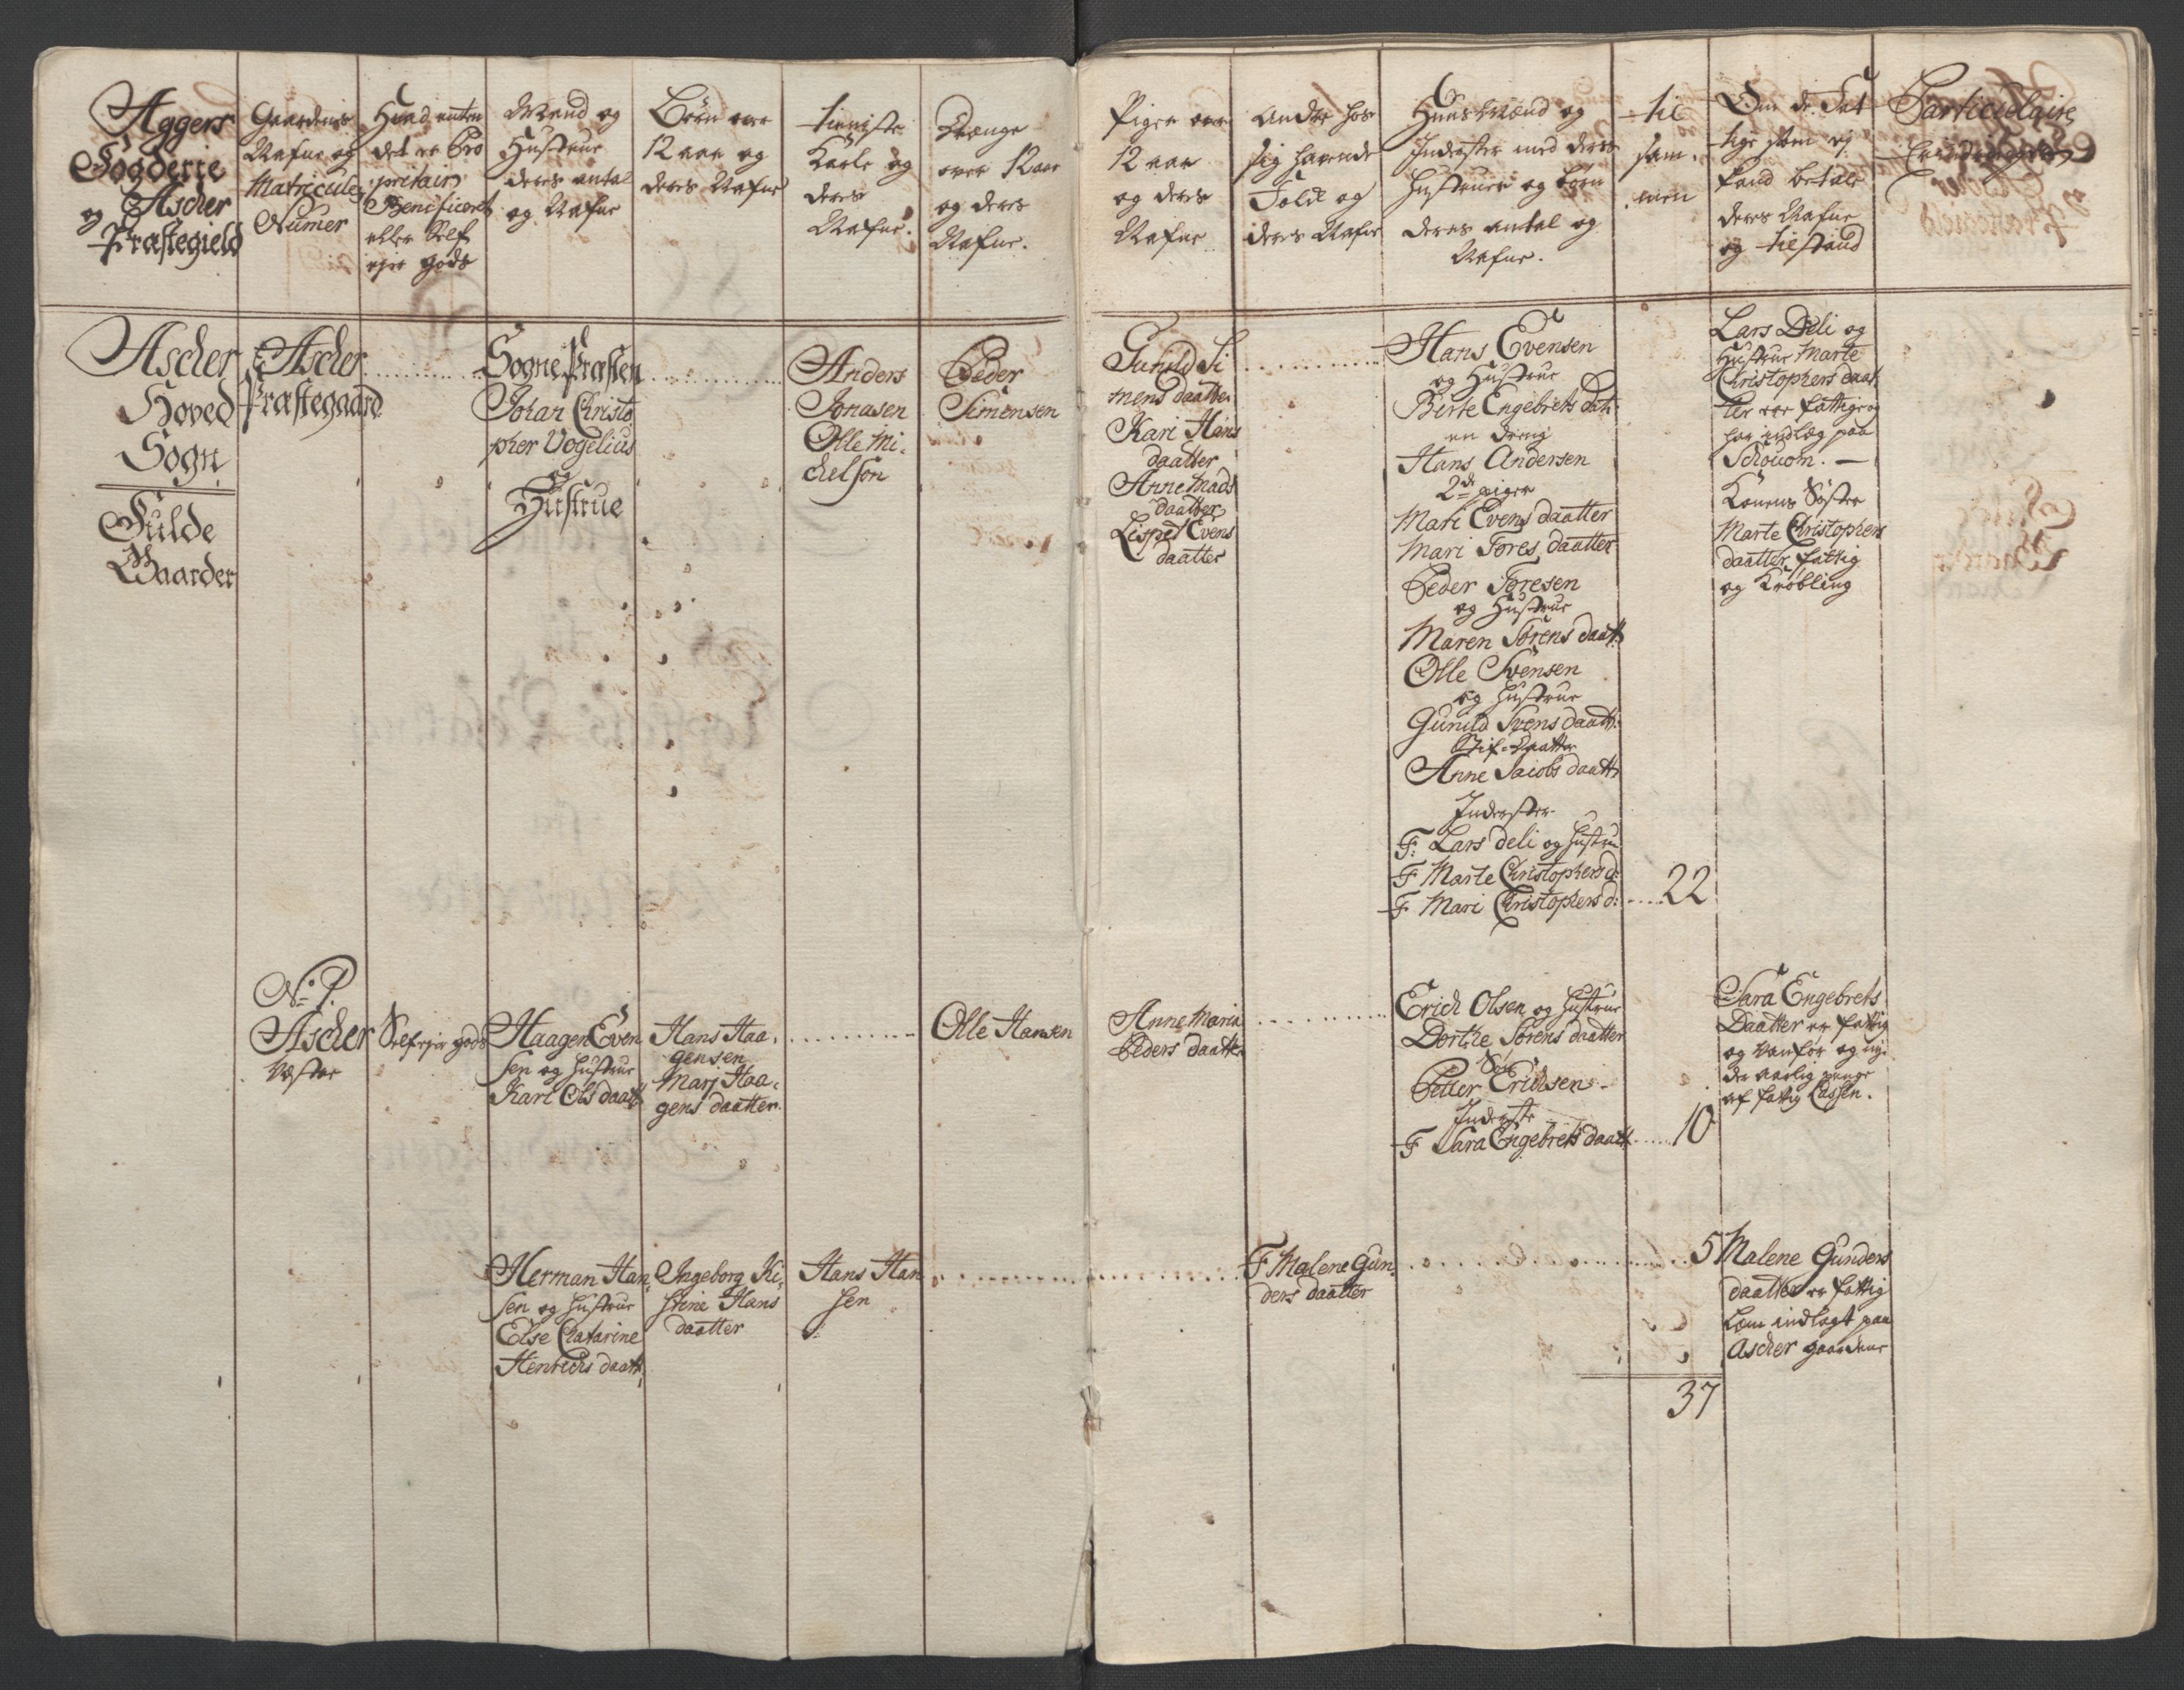 Aggers
Fogderie
og Ascher
Præstegield
Gaardenis
Nafne og
Matricules
Numer
Hvad enten
det er Pro
prietair,
Beneficeret
eller Self
ejer gods
Mænd og
Hustrue
deres antal
og Nafne
Børn over
12 aar og
deres Nafne
tieniste
Karle og
deres
Nafne.
Drænge
over 12 aar
og deres
Nafne.
Piger over
12 aar
og deres
Nafne
Andre hos
sig havende
Folk og
deres Nafne
Huusmænd og
Inderster med deres
Hustruer og børn
deres antal og
Nafne.
til
sam,
men
Om de Fat
tige som ej
kand betale
deres Nafne
og tilstand
Particulaire
Ascher
Hoved
Sogn
Fulde
Gaarder
Ascher
Præstegaard
SognePræsten
Johan Christo
pher Vogelius
og
Hustrue
Anders
Jonasen
Olle Mi,
chelsøn
Peder
Simensen
Gunild Si
mens daatter
Kari Hans
daatter
Anne Mads
daatter
Lispet Evens
daatter
Hans Evensen
og Hustrue
Birte Engebrets dat:
en dreng
Hans Andersen
2de piger
Mari Evens daatter
Mari Tores daatter
Peder Toresen
og Hustrue
Maren Sørens daatt:
Olle Svensen
og Hustrue
Gunild Svens daatt:
Stif-daatter
Anne Jacobs daatt:
Inderster
F: Lars Deli og Hustrue
F Marte Christophers d:
F Mari Christophers d: 22
Lars Deli og
Hustrue Marte
Christophers daat
ter er fattige og
har indlæg paa
Schouom. —
Konens Søster
Marte Christophers
daatter fattig
og Krøbling
No 1.
Ascher
Væstre
Selfejer gods
Haagen Even
sen og Hustrue
Kari Ols daatt
Hans Haa,
gensen
Mari Haa,
gens daatter
Olle Hansen
Anne Maria
Peders daatter
Erich Olsen og Hustrue
Dorthe Sørens daatter
Søn
Petter Erichsen
Inderste
F Sara Engebrets daatt 10
Sara Engebrets
Daatter er fattig
og vanfør og ny
der aarlig penge
af fattig Cassen.
Herman Han,
sen og Hustrue
Else Catarine
Henrichs daatt
Ingeborg Ki,
stine Hans
daatter
Hans Han
sen
F Malene Gun,
ders daatter
5
Malene Gunders
daatter er fattig
Lem indlagt paa
Ascher gaardene
37